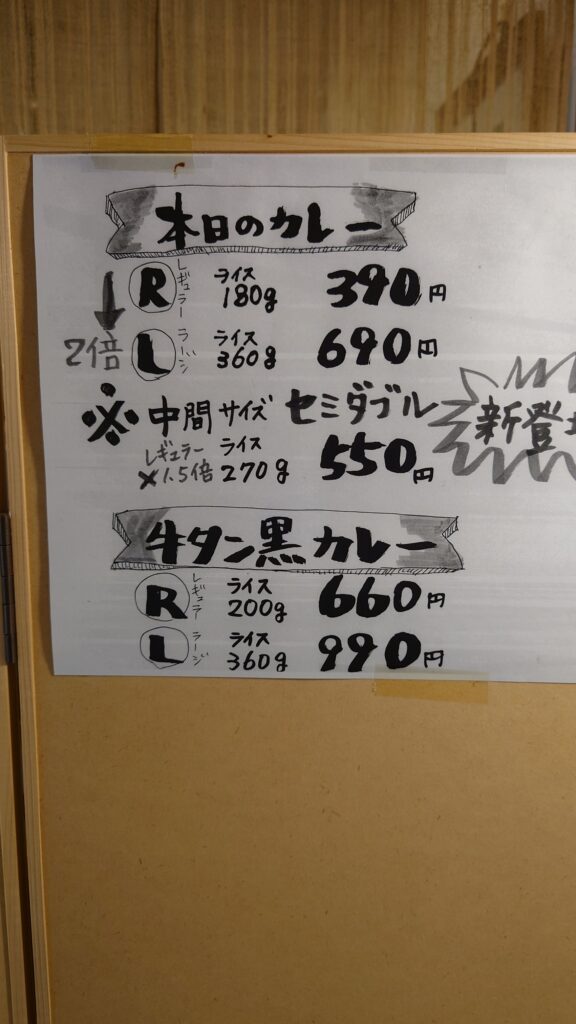 本日のカレー
R レギュラー ライス 180g 390円
2倍 L ラージ ライス 360g 690円
※中間サイズ セミダブル 新登
レギュラー×1.5倍 ライス 270g 550円
牛タン黒カレー
R レギュラー ライス 200g 660円
L ラージ ライス 360g 990円